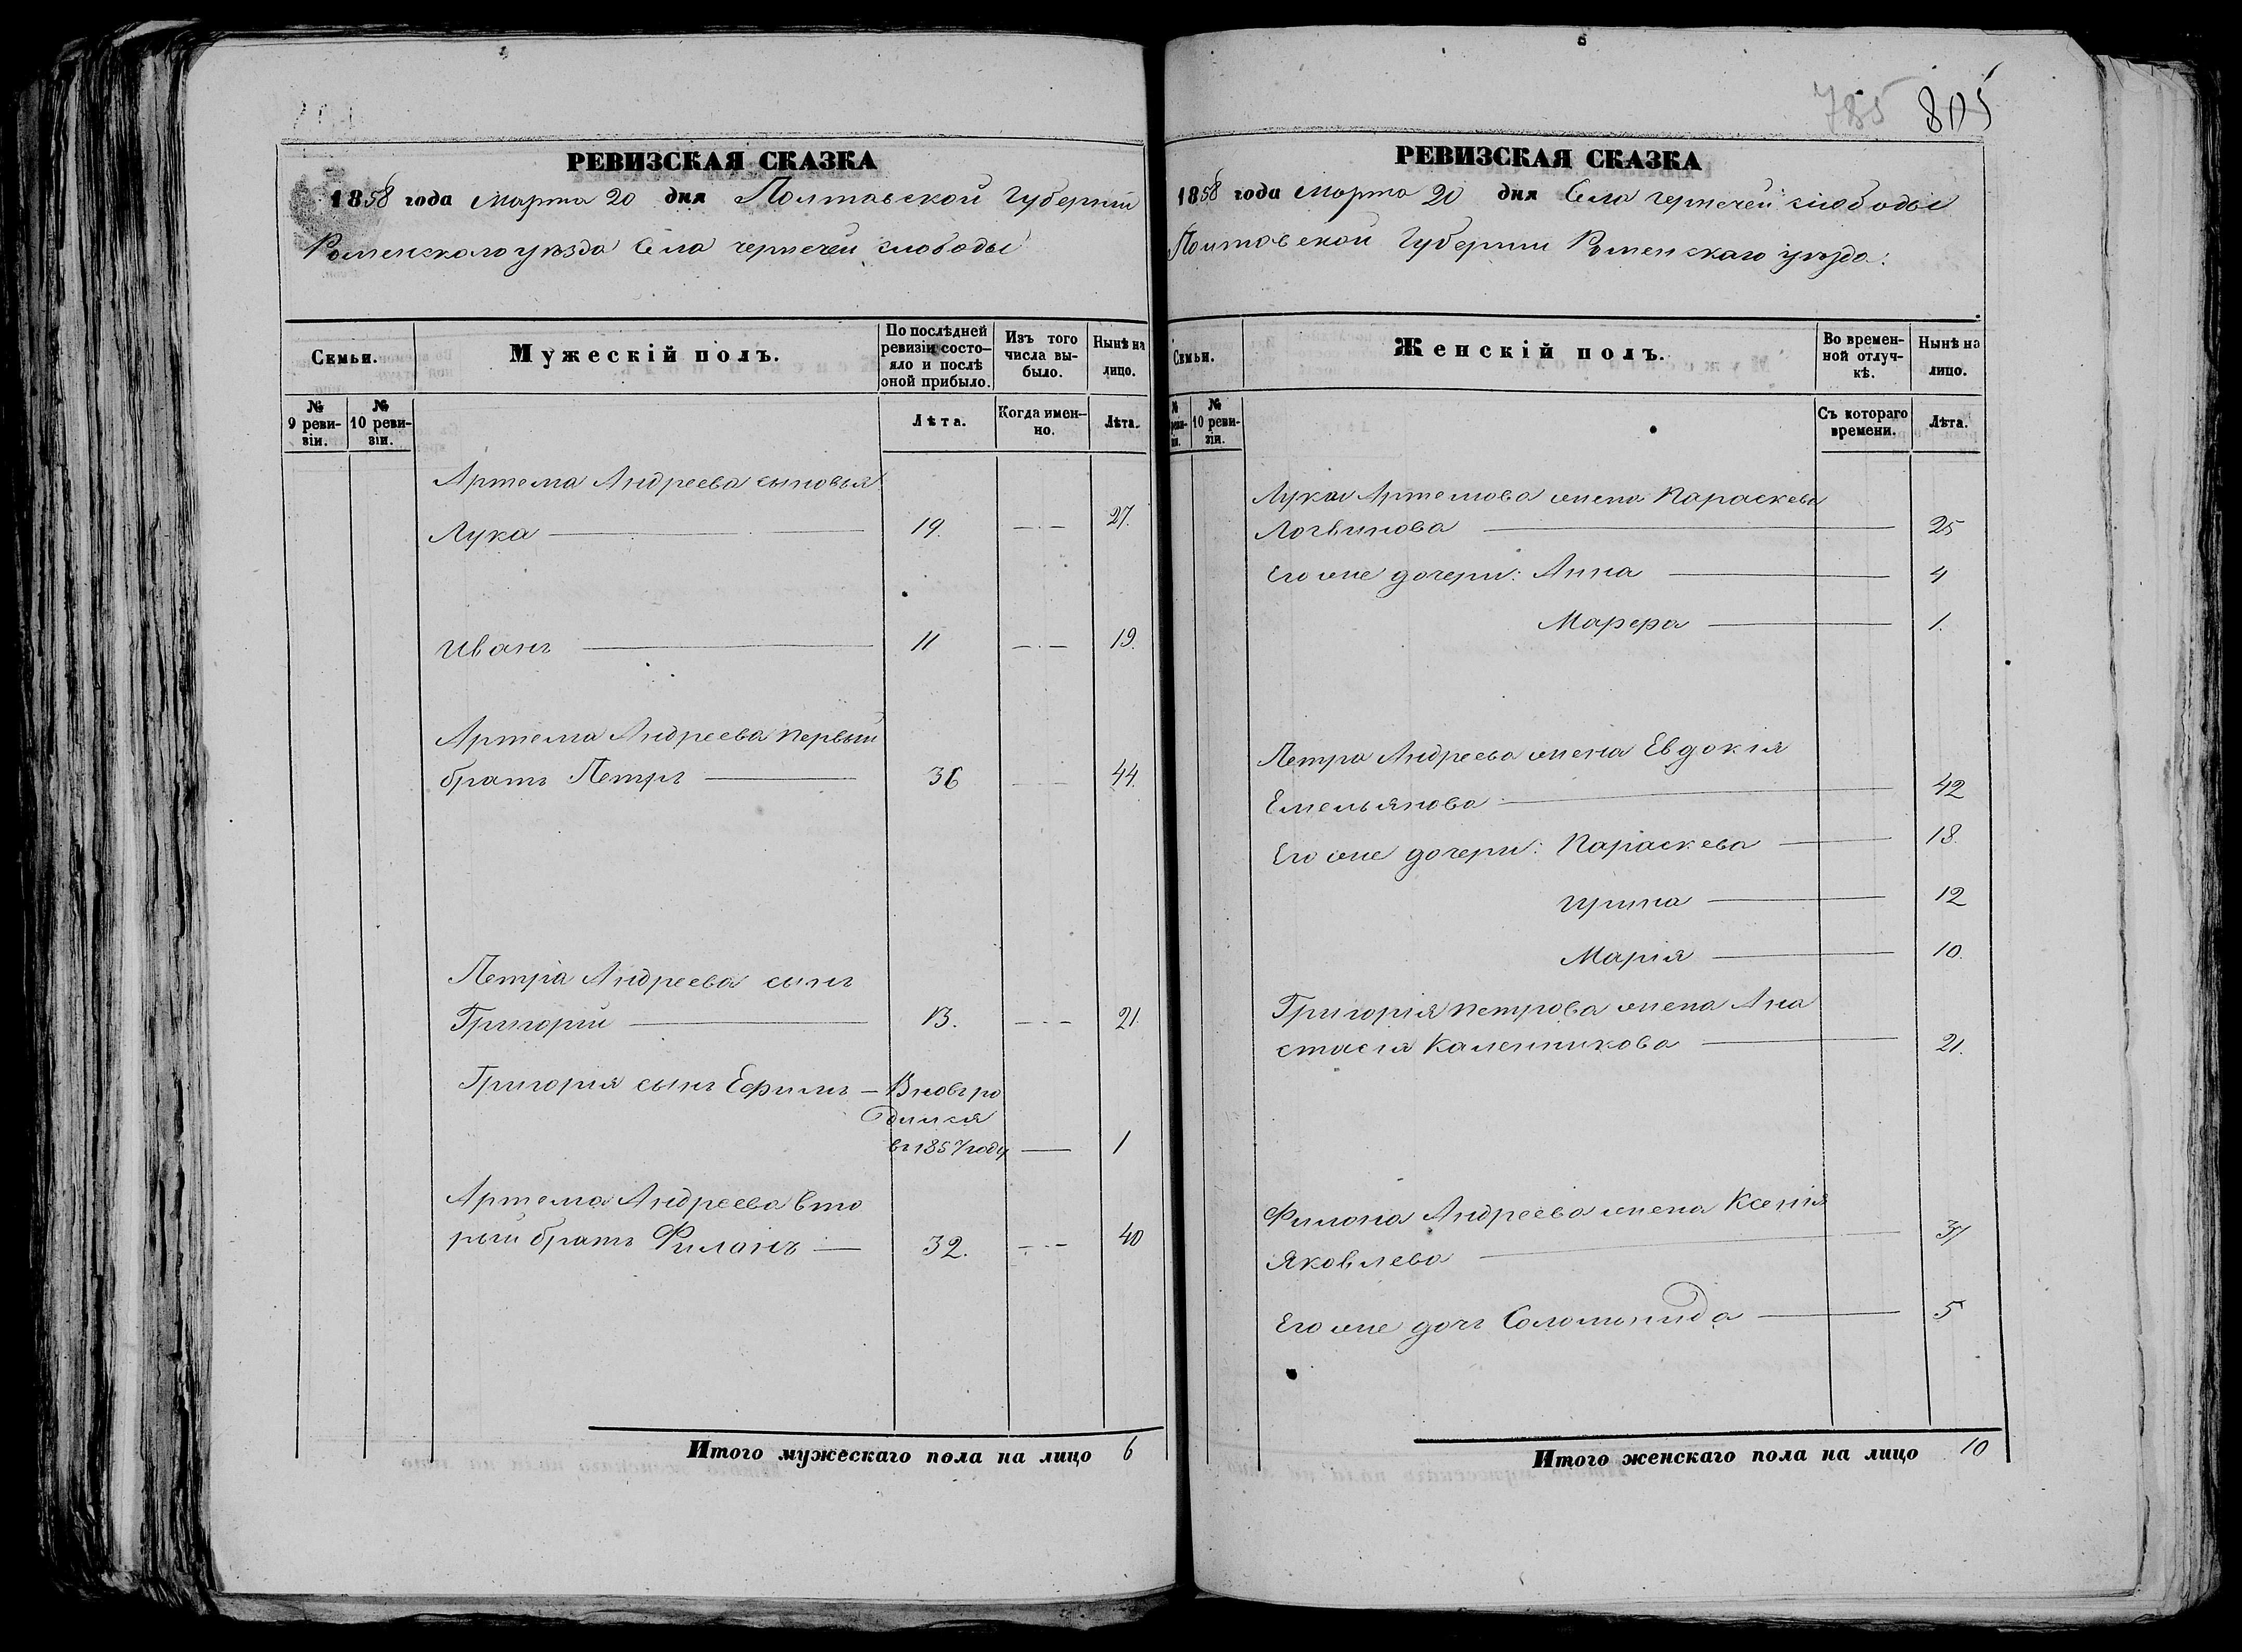 785 805
РЕВИЗСКАЯ СКАЗКА
1858 года Марта 20 дня Полтавской Губерніи
Роменского уѣзда Села чернечей слободы
Семьи.
Мужескій полъ.
По послѣдней ревизіи состо-
яло и послѣ
оной прибыло.
Изъ того
числа вы-
было.
Нынѣ на
лицо.
№
9 реви-
зіи.
№
10 реви-
зіи.
Лѣта.
Когда имен-
но.
Лѣта.
Артема Андреева сыновья
Лука 19. 27.
Иванъ 11 19.
Артема Андреева первый
братъ Петръ 36 44.
Петра Андреева сынъ
Григорій 13. 21.
Григорія сынъ Ефимъ — Вновь ро
дился
въ 1857 году 1
Артема Андреева вто
рый братъ Филонъ 32. 40
Итого мужескаго пола на лицо 6
РЕВИЗСКАЯ СКАЗКА
1858 года Марта 20 дня Села чернечей слободы
Полтавской Губерніи Роменскаго уѣзда.
Семьи.
Женскій полъ.
Во времен-
ной отлуч-
кѣ.
Нынѣ на
лицо.
№
10 реви-
зіи.
Съ котораго
времени.
Лѣта.
Луки Артемова жена Параскева
Логвинова 25
Его же дочери: Анна 4
Марфа 1.
Петра Андреева жена Евдокія
Емельянова 42
Его же дочери: Параскева 18.
Ирина 12
Марія 10.
Григорія Петрова жена Ана
стасія Каленникова 21.
Филона Андреева жена Ксенія
Яковлева 37
Его же дочь Соломонида 5
Итого женскаго пола на лицо 10